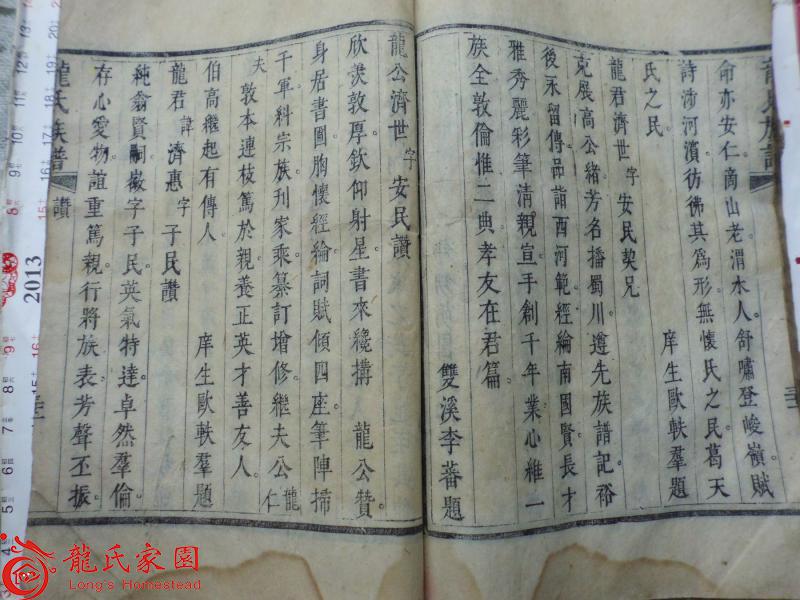 命亦安仁商山老渭水人舒嘯登峻嶺賦
詩涉河濱彷彿其爲形無懷氏之民葛天
氏之民
庠生歐軼羣題
龍君濟世字安民契兄
克展高公緒芳名播蜀川遵先族譜記裕
後永留傳品詣西河範經綸南國賢長才
雅秀麗彩筆清親宣手創千年業心維一
族全敦倫惟二典孝友在君篇
雙溪李蕃題
龍公濟世字安民讚
欣羨敦厚欽仰射星書來纔搆人龍公贊
身居書圃胸懷經綸詞賦傾四座筆陣掃
千軍科宗族刊家乘纂訂增修繼夫公龍仁
夫敦本連枝篤於親養正英才善友人
伯高繼起有傳人
庠生歐軼羣題
龍君諱濟惠字子民讚
純翁賢嗣嶽字子民英氣特達卓然羣倫
存心愛物誼重篤親行將族表芳聲丕振
龍氏族譜
讚
2013
龍氏家園
Long's Homestead